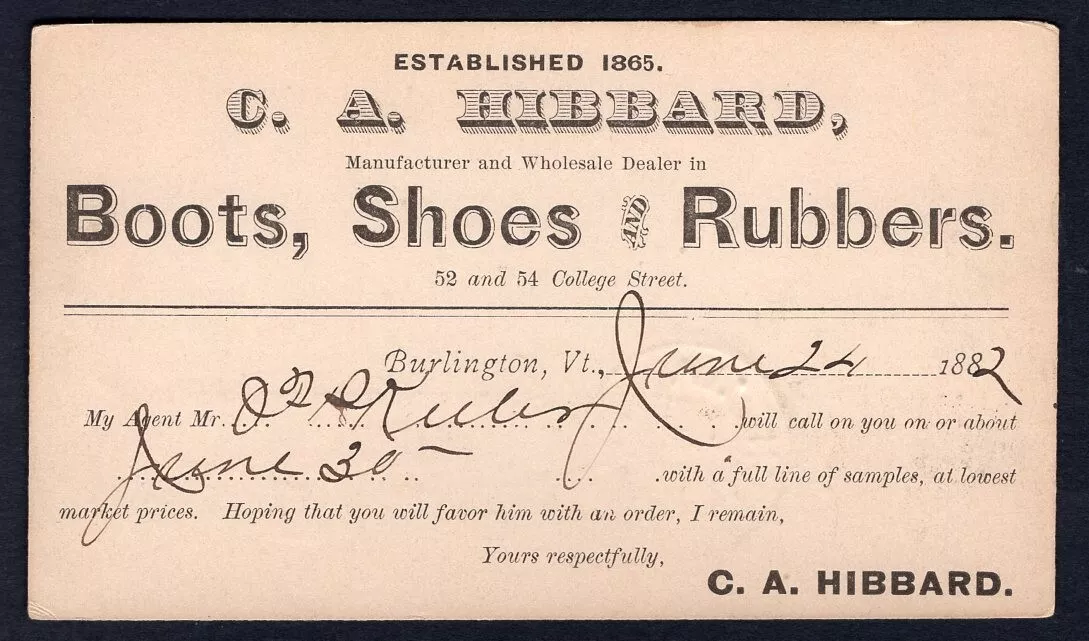 ESTABLISHED 1865.
C. A. HIBBARD,
Manufacturer and Wholesale Dealer in
Boots, Shoes AND Rubbers.
52 and 54 College Street.
Burlington, Vt., June 24 1882
My Agent Mr. will call on you on or about
June 30 with a full line of samples, at lowest
market prices. Hoping that you will favor him with an order, I remain,
Yours respectfully,
C. A. HIBBARD.